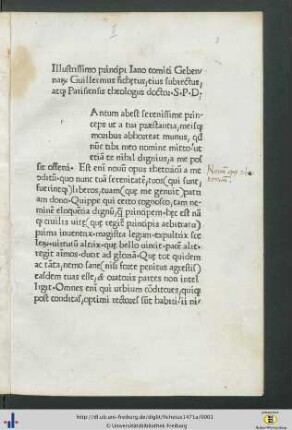 Illustrissimo principi Iano comiti Gebennarum
Guillermus fichetus, eius subiectus,
atq; Parisiensis theologus doctor .S.P.D;
Antum abest serenissime princeps
ut a tua præstantia, meisq;
moribus abhorreat munus, qd
nūc tibi meo nomine mittitur: ut
etiā et nihil dignius, a me possit
offerri. Est eni nouū opus rhetoricū a me
editū: quo nunc tuā serenitatē, tuos (qui sunt,
fuerintq;) liberos, tuam (quę me genuit) patriam
dono. Quippe qui certo cognosco, tam neminē
eloquentia dignū, q̄ principem. hęc est nāq;
ciuilis uitę (quę regitē principis arbitratu)
prima inuentrix. magistra legum. expultrix scelerum.
uirtutū altrix. quę bello uincit. pacē alit.
regit aīmos. ducit ad gloriā. Quę tot quidem
ac tāta, nemo sane (nisi forte penitus agrestis)
easdem tuas esse, & oratoris partes non intelligit.
Omnes eni qui urbium cōditores, quiq;
post conditas, optimi rectores sūt habiti: ii
http://dl.ub.uni-freiburg.de/diglit/fichetus1471a/0001
© Universitätsbibliothek Freiburg